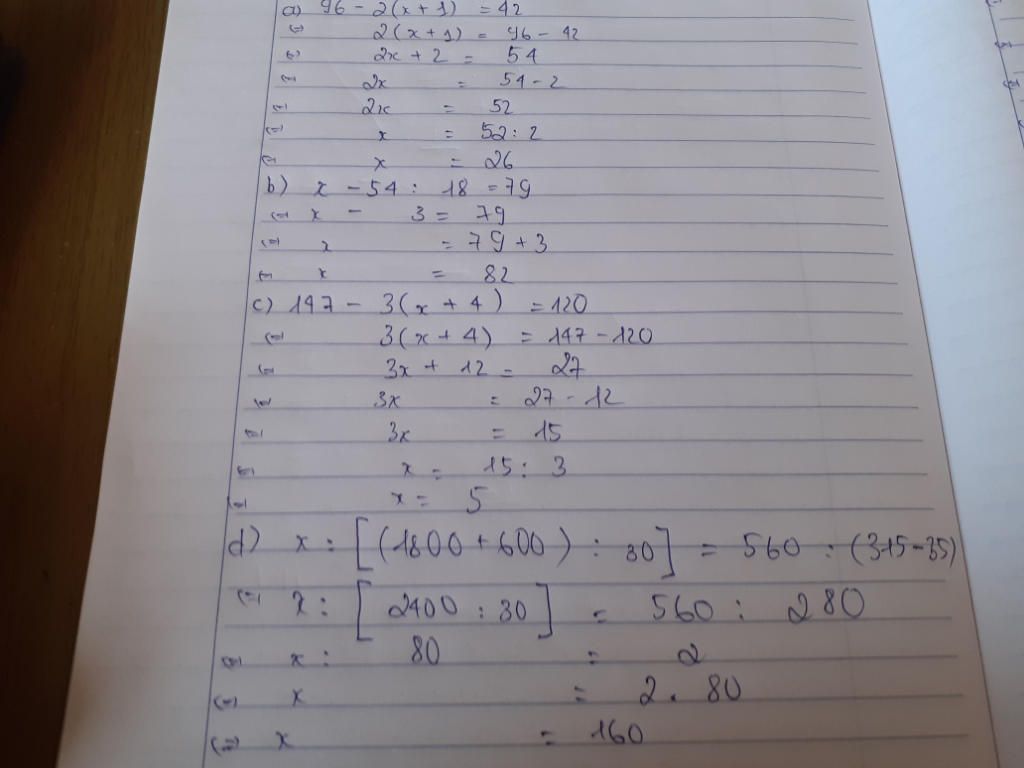 a) 96 - 2(x + 1) = 42
⇔ 2(x + 1) = 96 - 42
⇔ 2x + 2 = 54
⇔ 2x = 54 - 2
⇔ 2x = 52
⇔ x = 52 : 2
⇔ x = 26
b) x - 54 : 18 = 79
⇔ x - 3 = 79
⇔ x = 79 + 3
⇔ x = 82
c) 147 - 3(x + 4) = 120
⇔ 3(x + 4) = 147 - 120
⇔ 3x + 12 = 27
⇔ 3x = 27 - 12
⇔ 3x = 15
⇔ x = 15 : 3
⇔ x = 5
d) x : [(1800 + 600) : 30] = 560 : (315 - 35)
⇔ x : [2400 : 30] = 560 : 280
⇔ x : 80 = 2
⇔ x = 2 . 80
⇔ x = 160